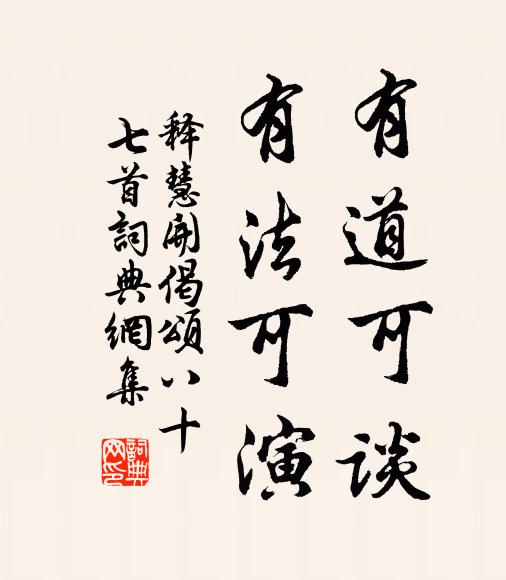 有道可谈
有法可演
释慧开偈颂八十
七首词典網集
詞典
网印